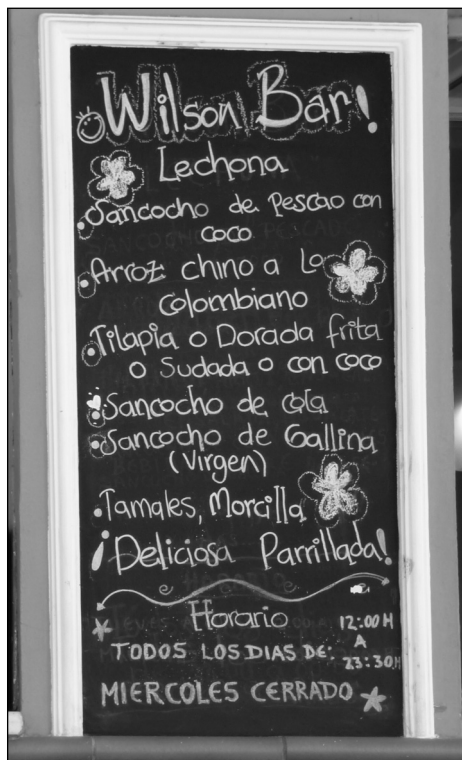 Wilson Bar!
Lechona
Sancocho de Pescao con
coco
Arroz chino a Lo
Colombiano
Tilapia o Dorada frita
o Sudada o con coco
Sancocho de cola
Sancocho de Gallina
(Virgen)
Tamales, Morcilla
¡Deliciosa Parrillada!
Horario
12:00H
A
TODOS LOS DIAS DE:
23:30H
MIERCOLES CERRADO